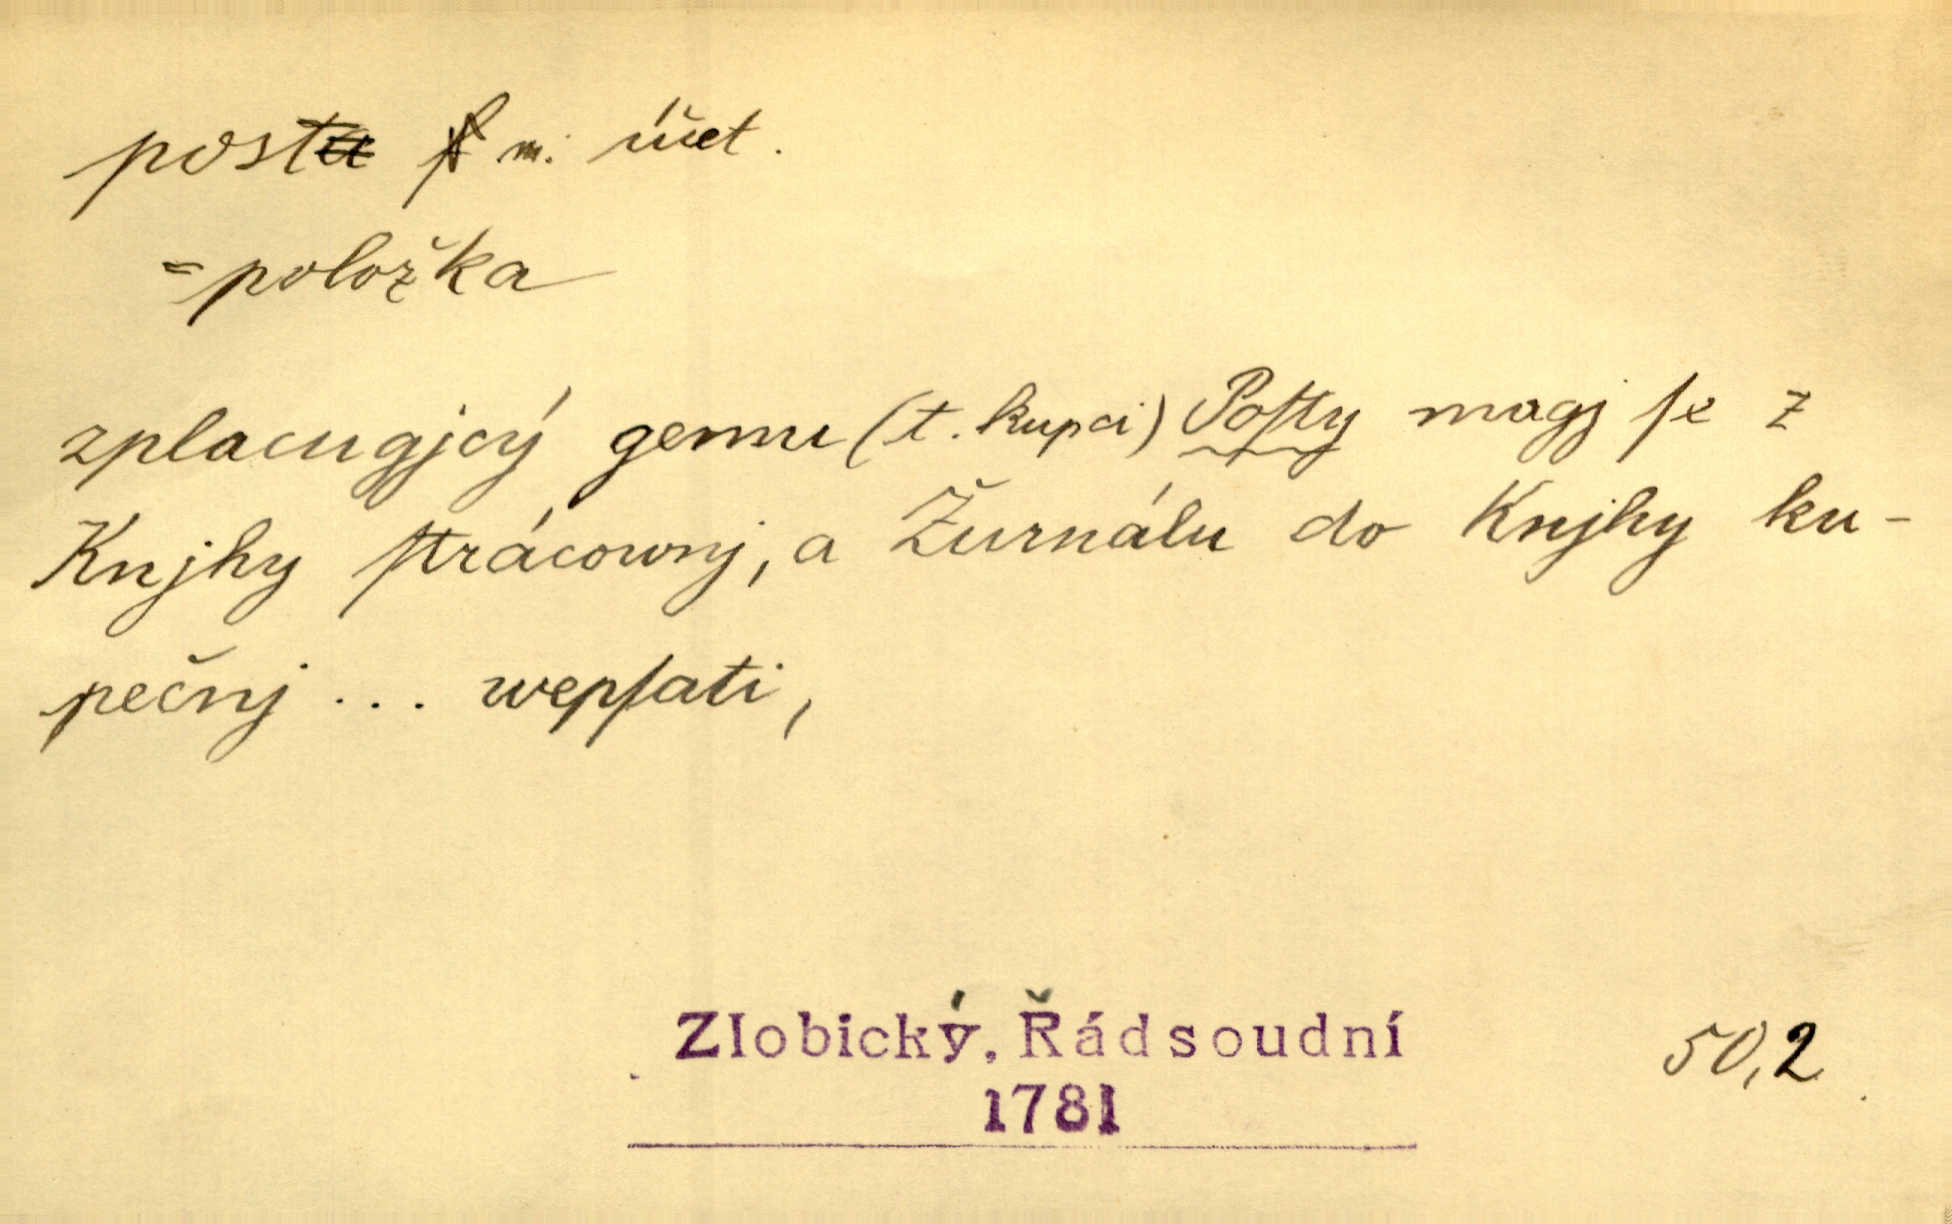 post m. účet.
=položka
zplacugjcý gemu (t. kupci) Poſty magj ſe z
Knjhy ſtrácownj, a Žurnálu do Knjhy ku-
pečnj ... wepſati,
Zlobický, Řád soudní
1781
50,2